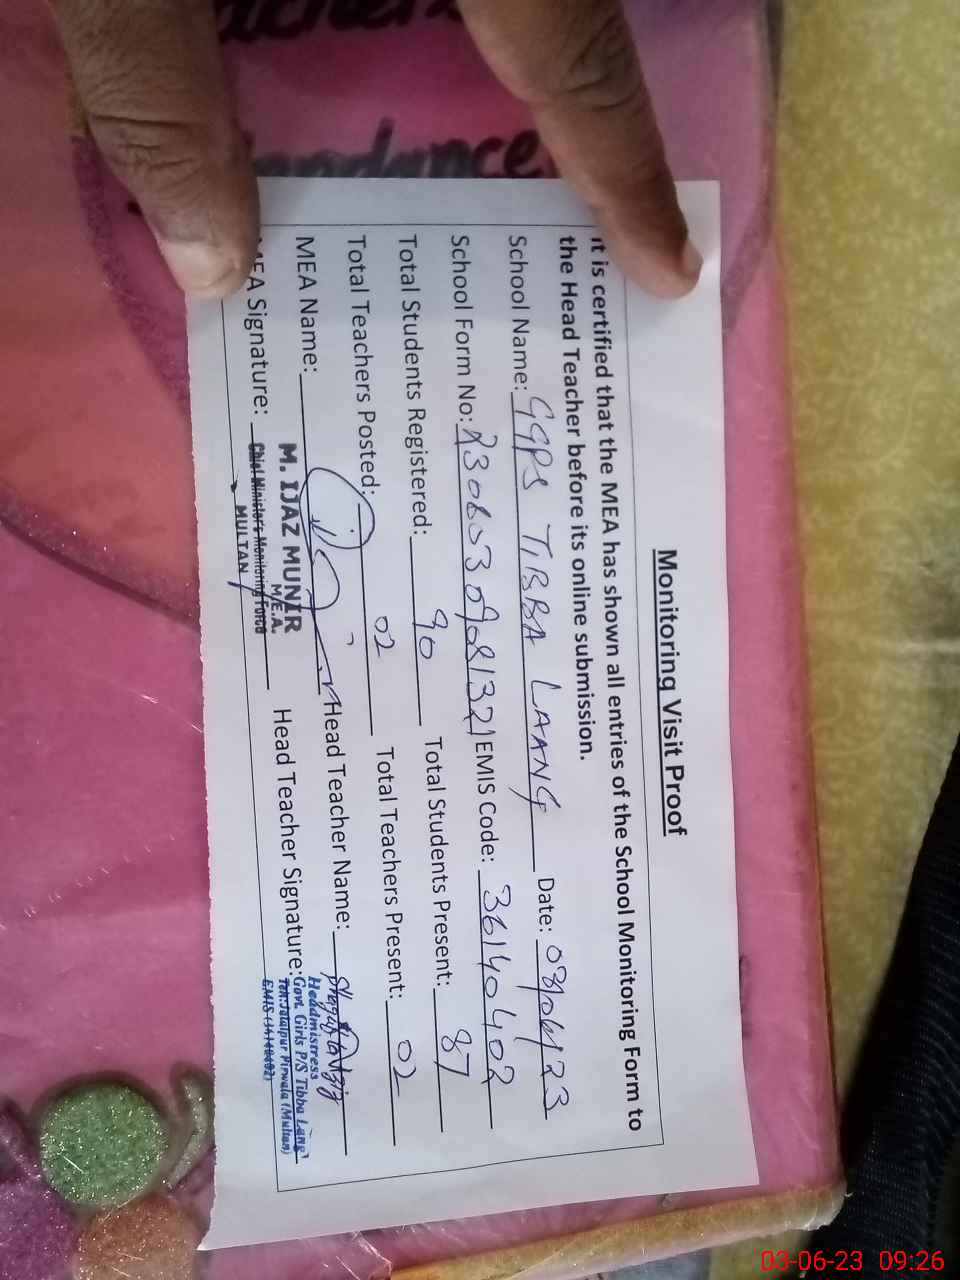 Monitoring Visit Proof
It is certified that the MEA has shown all entries of the School Monitoring Form to
the Head Teacher before its online submission.
School Name: GGPS TIBBA LAANG Date: 03/06/23
School Form No: EMIS Code: 36140402
Total Students Registered: 90 Total Students Present: 87
Total Teachers Posted: 02 Total Teachers Present: 02
MEA Name: Head Teacher Name:
M. IJAZ MUNIR
M.E.A.
MEA Signature: Chief Ministers Monitoring Force
MULTAN
Head Teacher Signature:
Headmistress
Govt. Girls P/S Tibba Lang
Teh: Jalalpur Pirwala (Multan)
03-06-23 09:26